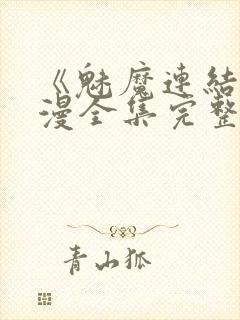 《魅魔連結
漫全集完整
青山狐